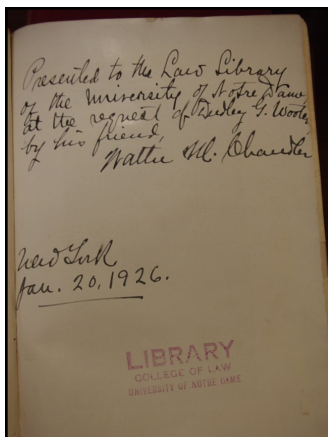 Presented to the Law Library
of the University of Notre Dame
at the request of Dudley G. Wooten,
by his friend,
Walter M. Chandler
New York
Jan. 20, 1926.
LIBRARY
COLLEGE OF LAW
UNIVERSITY OF NOTRE DAME